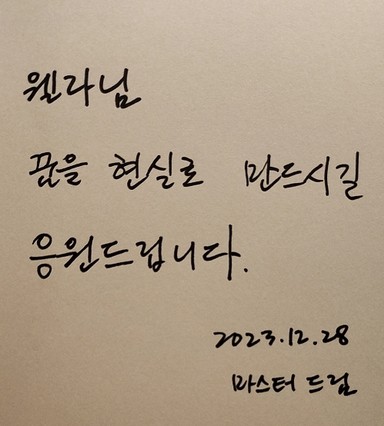 웰라님
꿈을 현실로 만드시길
응원드립니다.
2023.12.28
마스터 드림